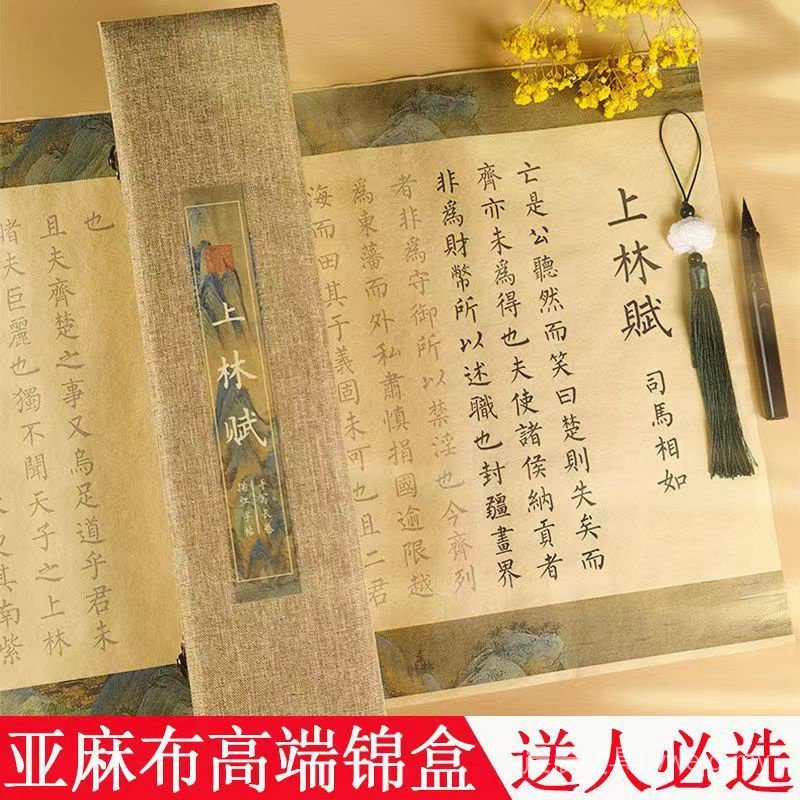 上林賦
司馬相如
亡是公聽然而笑曰楚則失矣而
齊亦未爲得也夫使諸侯納貢者
非爲財幣所以述職也封疆畫界
者非爲守御所以禁淫也今齊列
爲東藩而外私肅慎捐國逾限越
海而田其于義固未可也且二君
也
且夫齊楚之事又烏足道乎君未
睹夫巨麗也獨不聞天子之上林
其南紫
上林赋
亚麻布高端锦盒
送人必选